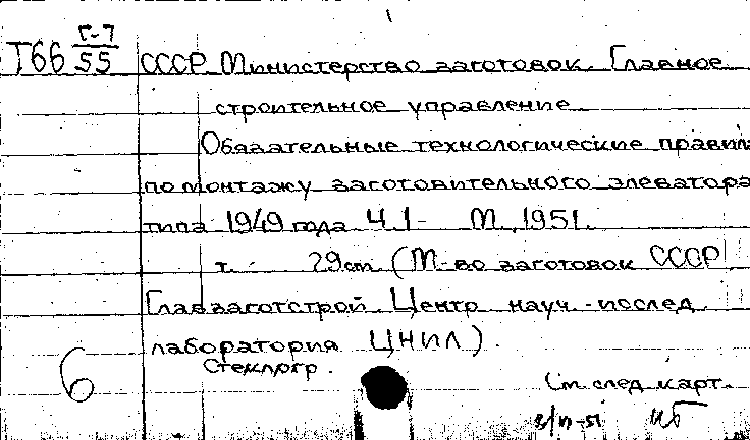 Т66 Г-7/55 СССР. Министерство заготовок. Главное
строительное управление
Обязательные технологические правила
по монтажу заготовительного элеватора
типа 1949 года Ч.1- М., 1951.
т. - 29 см (М-во заготовок СССР
Главзаготстрой. Центр. науч.-послед.
лаборатория ЦНИЛ).
Стеклогр.
6
См. след. карт.